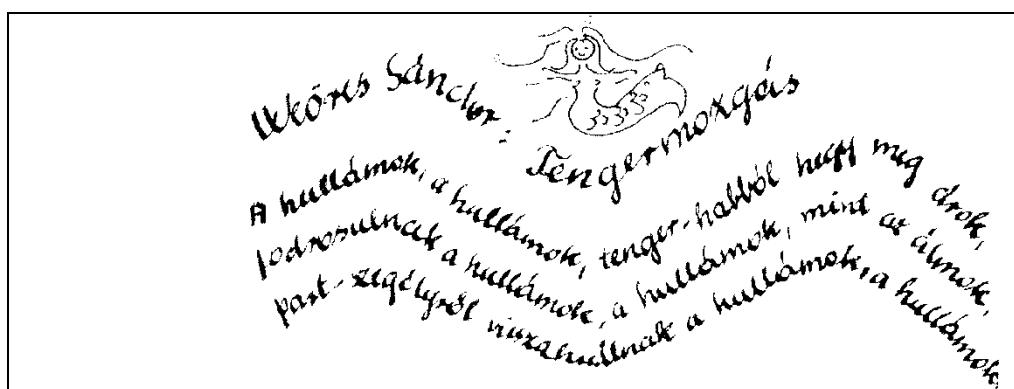 Weöres Sándor:
Tengermozgás
A hullámok, a hullámok, tenger-habból hegy meg árok,
fodrosulnak a hullámok, a hullámok, mint az álmok,
part-szegélyről visszahullnak a hullámok, a hullámok.